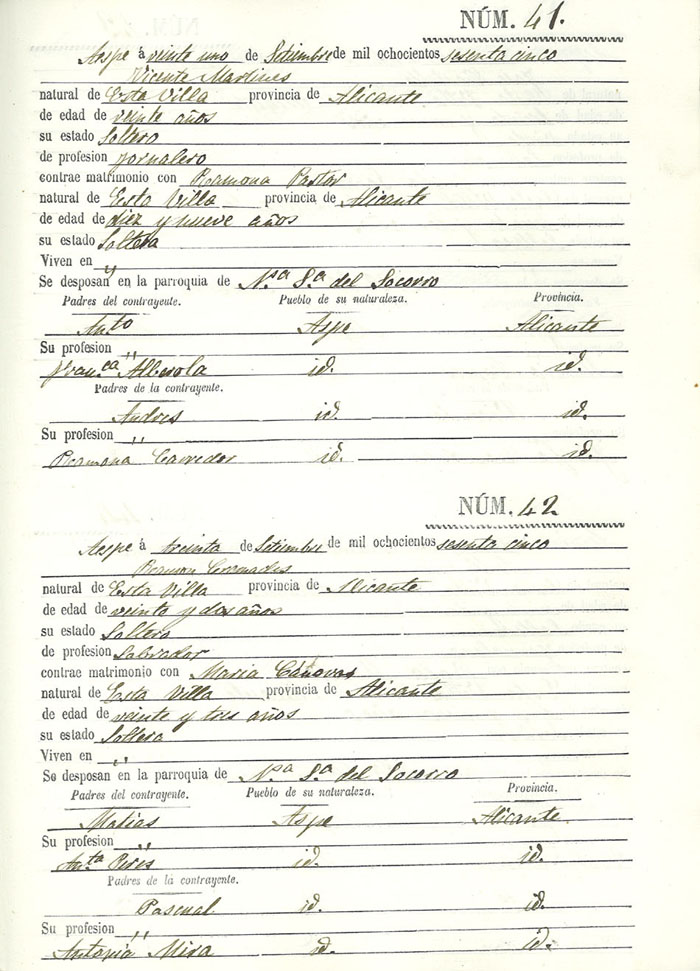 NÚM. 41.
Aspe á veinte uno de Setiembre de mil ochocientos sesenta cinco
Vicente Martines
natural de Esta Villa provincia de Alicante
de edad de veinte años
su estado Soltero
de profesion jornalero
contrae matrimonio con Ramona Pastor
natural de Esta Villa provincia de Alicante
de edad de diez y nueve años
su estado Soltera
Viven en "
Se desposan en la parroquia de N.ª S.ª del Socorro
Padres del contrayente. Pueblo de su naturaleza. Provincia.
Ant.º Aspe Alicante
Su profesion "
Fran.ca Alberola id. id.
Padres de la contrayente.
Andres id. id.
Su profesion "
Ramona Corredor id. id.
NÚM. 42
Aspe á treinta de Setiembre de mil ochocientos sesenta cinco
Ramon Cremades
natural de Esta Villa provincia de Alicante
de edad de veinte y dos años
su estado Soltero
de profesion Labrador
contrae matrimonio con Maria Cánovas
natural de Esta Villa provincia de Alicante
de edad de veinte y tres años
su estado Soltera
Viven en "
Se desposan en la parroquia de N.ª S.ª del Socorro
Padres del contrayente. Pueblo de su naturaleza. Provincia.
Matias Aspe Alicante
Su profesion "
Ant.ª Peres id. id.
Padres de la contrayente.
Pascual id. id.
Su profesion "
Antonia Mira id. id.